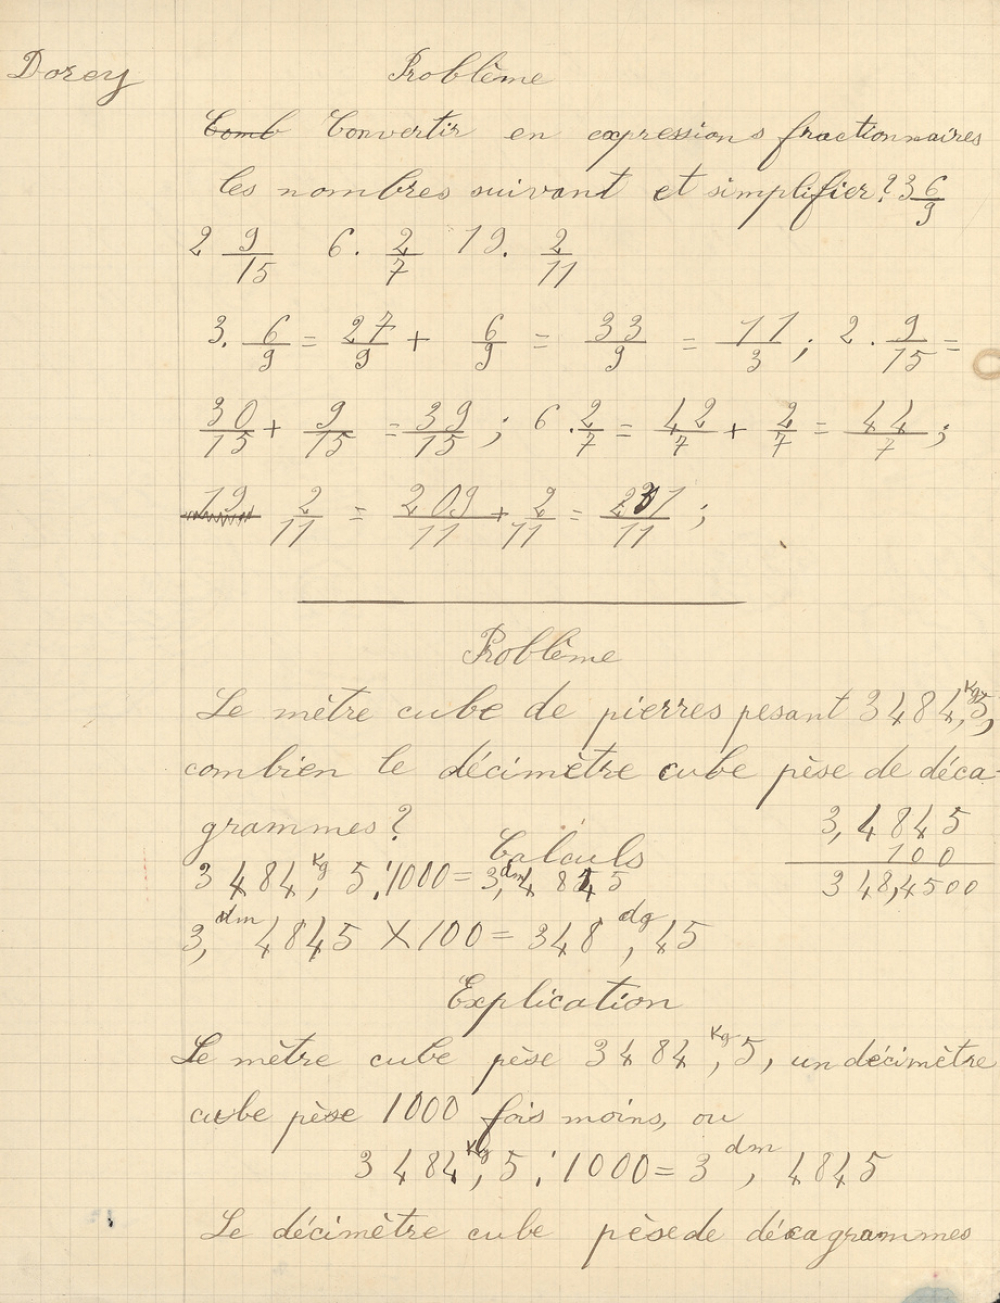 Dorey Problème
Comb Convertir en expressions fractionnaires
les nombres suivant et simplifier? 3 6/9
2 9/15 6. 2/7 19. 2/11
3. 6/9 = 27/9 + 6/9 = 33/9 = 11/3 ; 2. 9/15 =
30/15 + 9/15 = 39/15 ; 6. 2/7 = 42/7 + 2/7 = 44/7 ;
19 2/11 = 209/11 + 2/11 = 211/11 ;
Problème
Le mètre cube de pierres pesant 3484,Kg5,
combien le décimètre cube pèse de déca-
grammes?
3,4845
100
348,4500
Calculs
3484,Kg5 : 1000 = 3,dm4845
3,dm4845 X 100 = 348,dg45
Explication
Le mètre cube pèse 3484,Kg5, un décimètre
cube pèse 1000 fois moins, ou
3484,Kg5 : 1000 = 3,dm4845
Le décimètre cube pèse de décagrammes